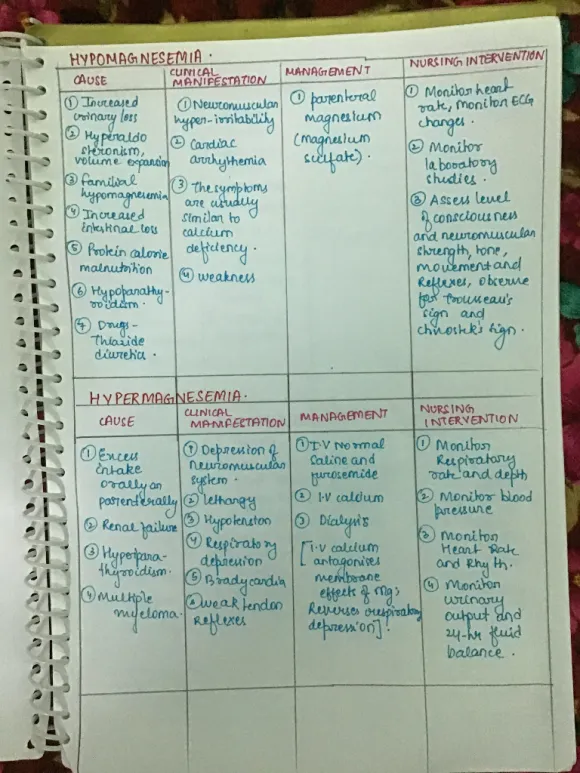 HYPOMAGNESEMIA.
CAUSE
① Increased
urinary loss
② Hyperaldo
steronism,
volume expansion
③ familial
hypomagnesemia
④ Increased
intestinal loss
⑤ Protein calorie
malnutrition
⑥ Hypoparathy-
roidism.
⑦ Drugs-
Thiazide
diuretics.
CLINICAL
MANIFESTATION
① Neuromuscular
hyper-irritability
② Cardiac
arrhythemia
③ The symptoms
are usually
similar to
calcium
deficiency.
④ weakness
MANAGEMENT
① parenteral
magnesium
(magnesium
sulfate).
NURSING INTERVENTION
① Monitor heart
rate, monitor ECG
changes.
② Monitor
laboratory
studies.
③ Assess level
of consciousness
and neuromuscular
strength, tone,
movement and
Reflexes, observe
for Trousseau's
sign and
chvostek's sign.
HYPERMAGNESEMIA.
CAUSE
① Excess
intake
orally or
parenterally
② Renal failure
③ Hyperpara-
thyroidism.
④ Multiple
myeloma.
CLINICAL
MANIFESTATION
① Depression of
neuromuscular
system.
② lethargy
③ Hypotension
④ Respiratory
depression
⑤ Bradycardia
⑥ weak tendon
Reflexes
MANAGEMENT
① I.V Normal
Saline and
furosemide
② I.V calcium
③ Dialysis
[I.V calcium
antagonises
membrane
effects of Mg;
Reverses respiratory
depression].
NURSING
INTERVENTION
① Monitor
Respiratory
rate and depth
② Monitor blood
pressure
③ Monitor
Heart Rate
and Rhyth.
④ Monitor
urinary
output and
24-hr fluid
balance.